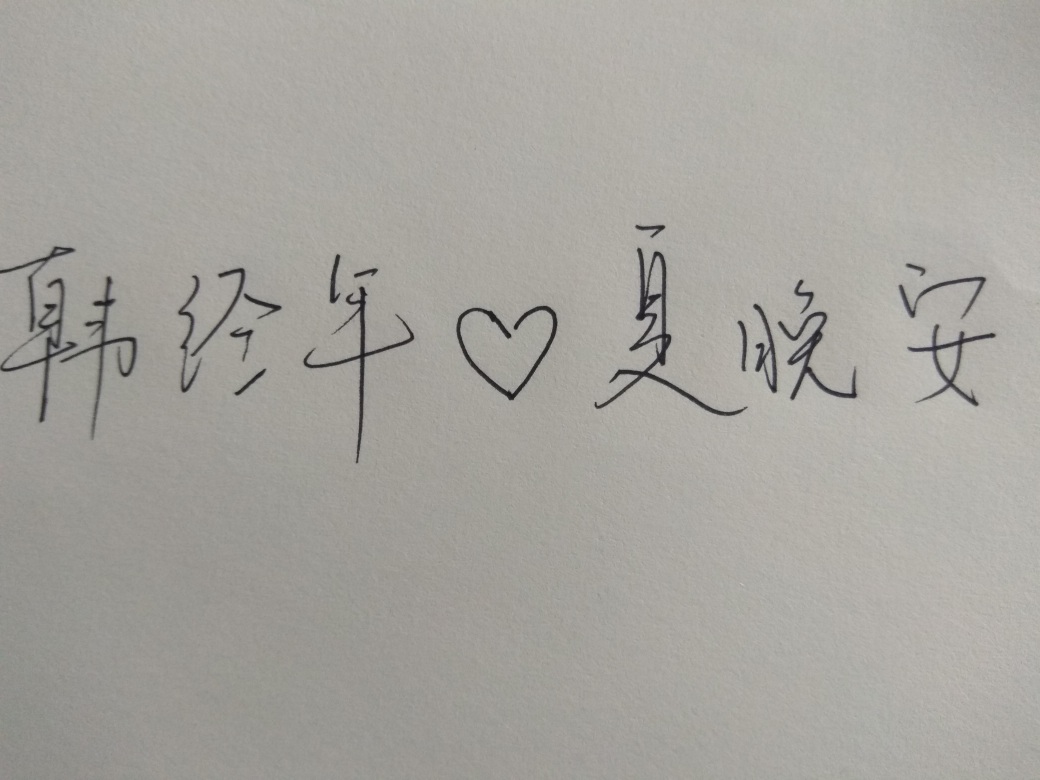 韩经年♡夏晚安